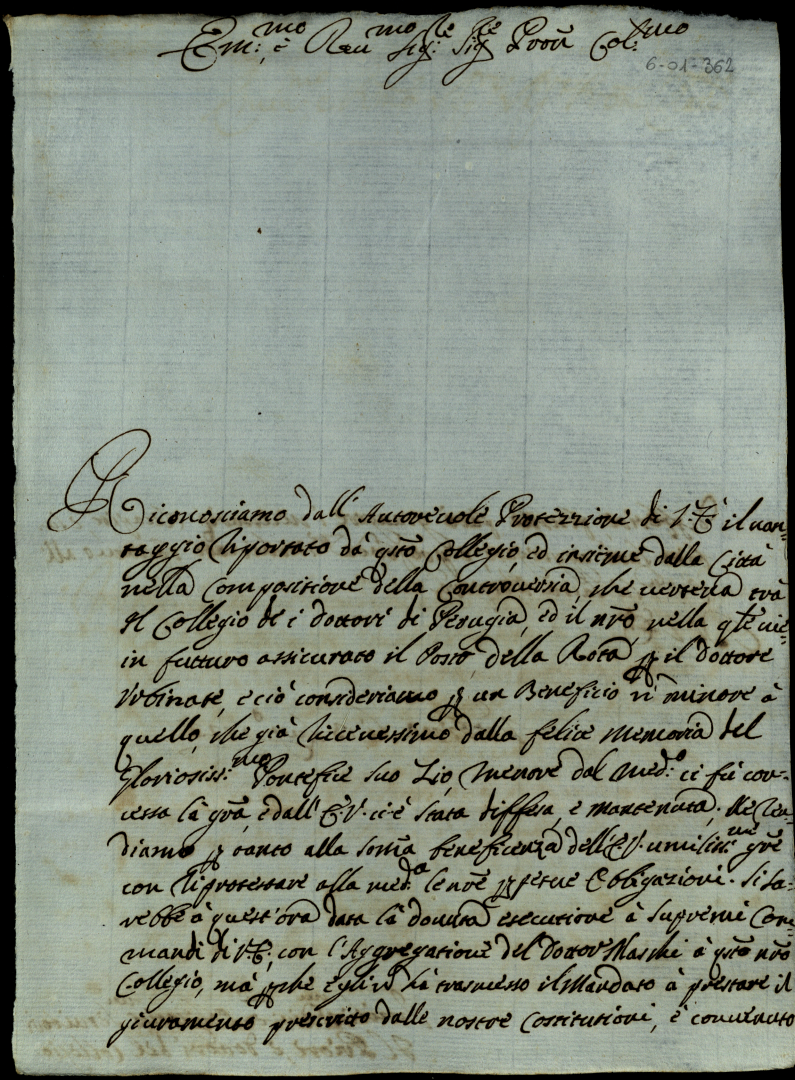 Em:mo, e Reu:mo Sig:re Sig:re Prõn Col:mo
6-01-362
Riconosciamo dall' Autoreuole Protezzione di V.E. il uan=
taggio riportato dà qsto Collegio, ed insieme dalla Città
nella Compositione della Controuersia, che uerteua trà
il Collegio de i dottori di Perugia, ed il nro, nella qle uie=
in futuro assicurato il Posto della Rota p il dottore
Vrbinate, e ciò consideriamo p un Beneficio ñ minore à
quello, che già riceuessimo dalla felice memoria del
gloriosiss:mo Pontefice suo Zio, mentre dal med:o ci fù con=
cessa la gra, e dall' E.V. ci è stata diffesa, e mantenuta. Ne ren=
diamo p tanto alla soma beneficenza dell'E.V. umiliss:me gre
con riprotestare alla med:a le nre ppetue Obbligazioni. Si sa=
rebbe à quest'ora data la douuta esecutione à supremi Com=
mandi di V.E., con l'Aggregatione del Dottor Maschi à qsto nro
Collegio, mà pche egli ñ hà trasmesso il Mandato à prestare il
giuramento prescritto dalle nostre Costitutioni, è conuenuto